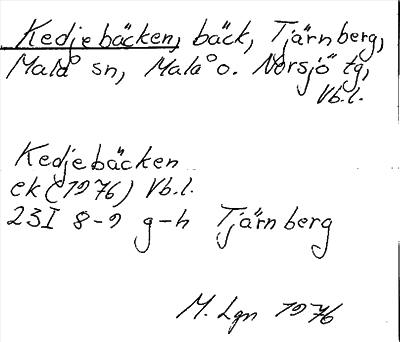 Kedjebäcken, bäck, Tjärnberg,
Malå sn, Malå o. Norsjö tg,
Vb.l.
Kedjebäcken
ek (1976) Vb.l.
23I 8-9 g-h Tjärnberg
M. Lgn 1976